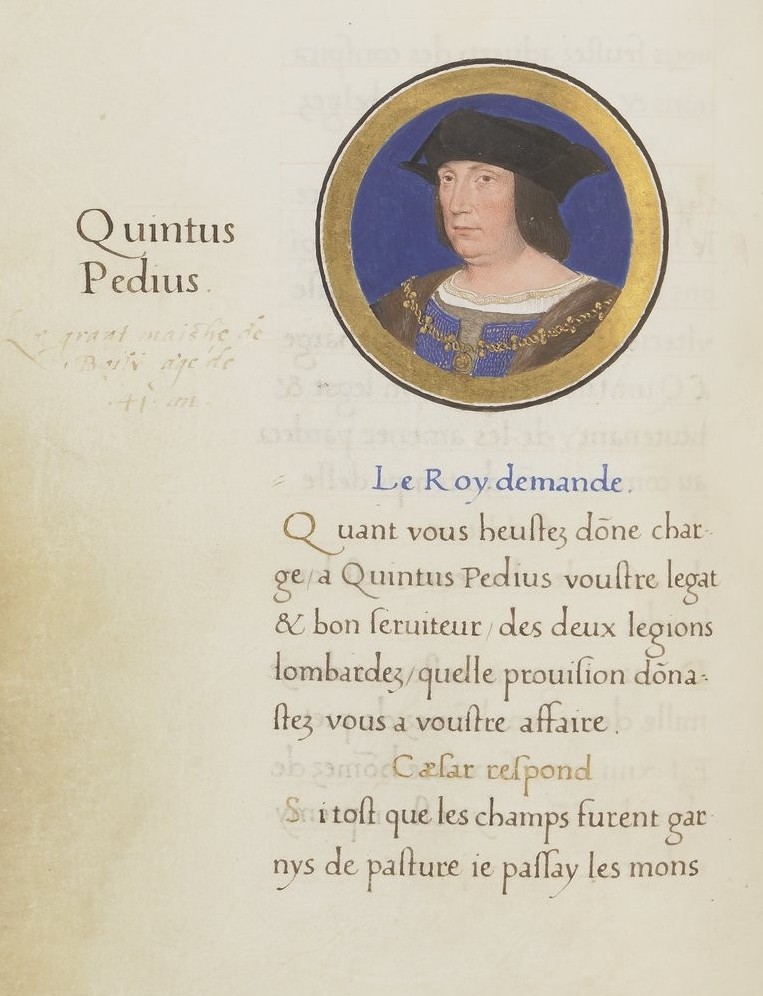 Quintus
Pedius.
Le grant maistre de
Boisy aige de
41. an.
Le Roy demande.
Quant vous heustez dõne char-
ge/a Quintus Pedius voustre legat
& bon seruiteur/des deux legions
lombardez/quelle prouision dõna-
stez vous a voustre affaire.
Cæsar respond
Si tost que les champs furent gar
nys de pasture ie passay les mons